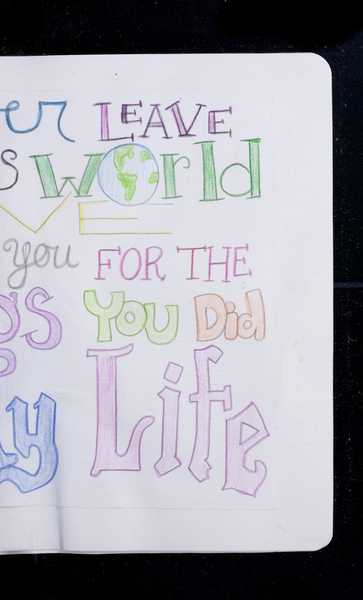 er LEAVE
s world
VE
you FOR THE
gs You Did
y Life